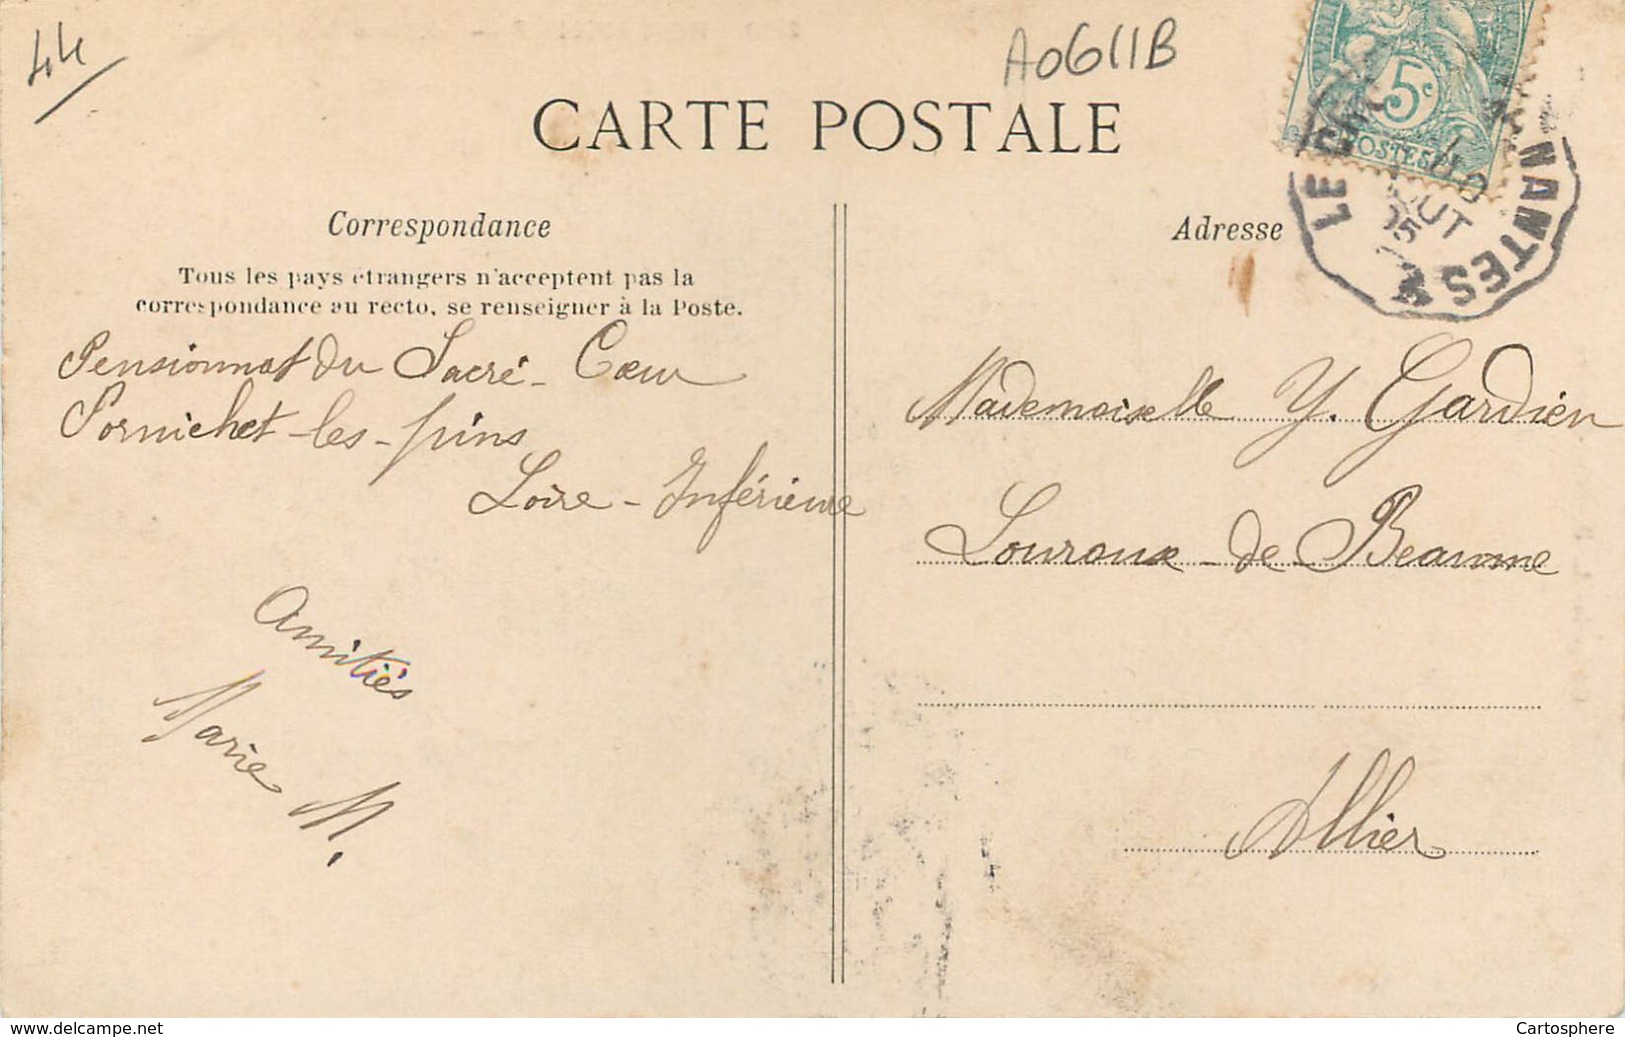 44
A0611B
CARTE POSTALE
5c
POSTES
LE CR
A NANTES
OUT
05
Correspondance
Tous les pays étrangers n'acceptent pas la
correspondance au recto, se renseigner à la Poste.
Pensionnat du Sacré-Cœur
Pornichet-les-pins
Loire-Inférieure
Amitiés
Marie M.
Adresse
Mademoiselle Y. Gardien
Louroux-de Beaune
Allier
www.delcampe.net
Cartosphere